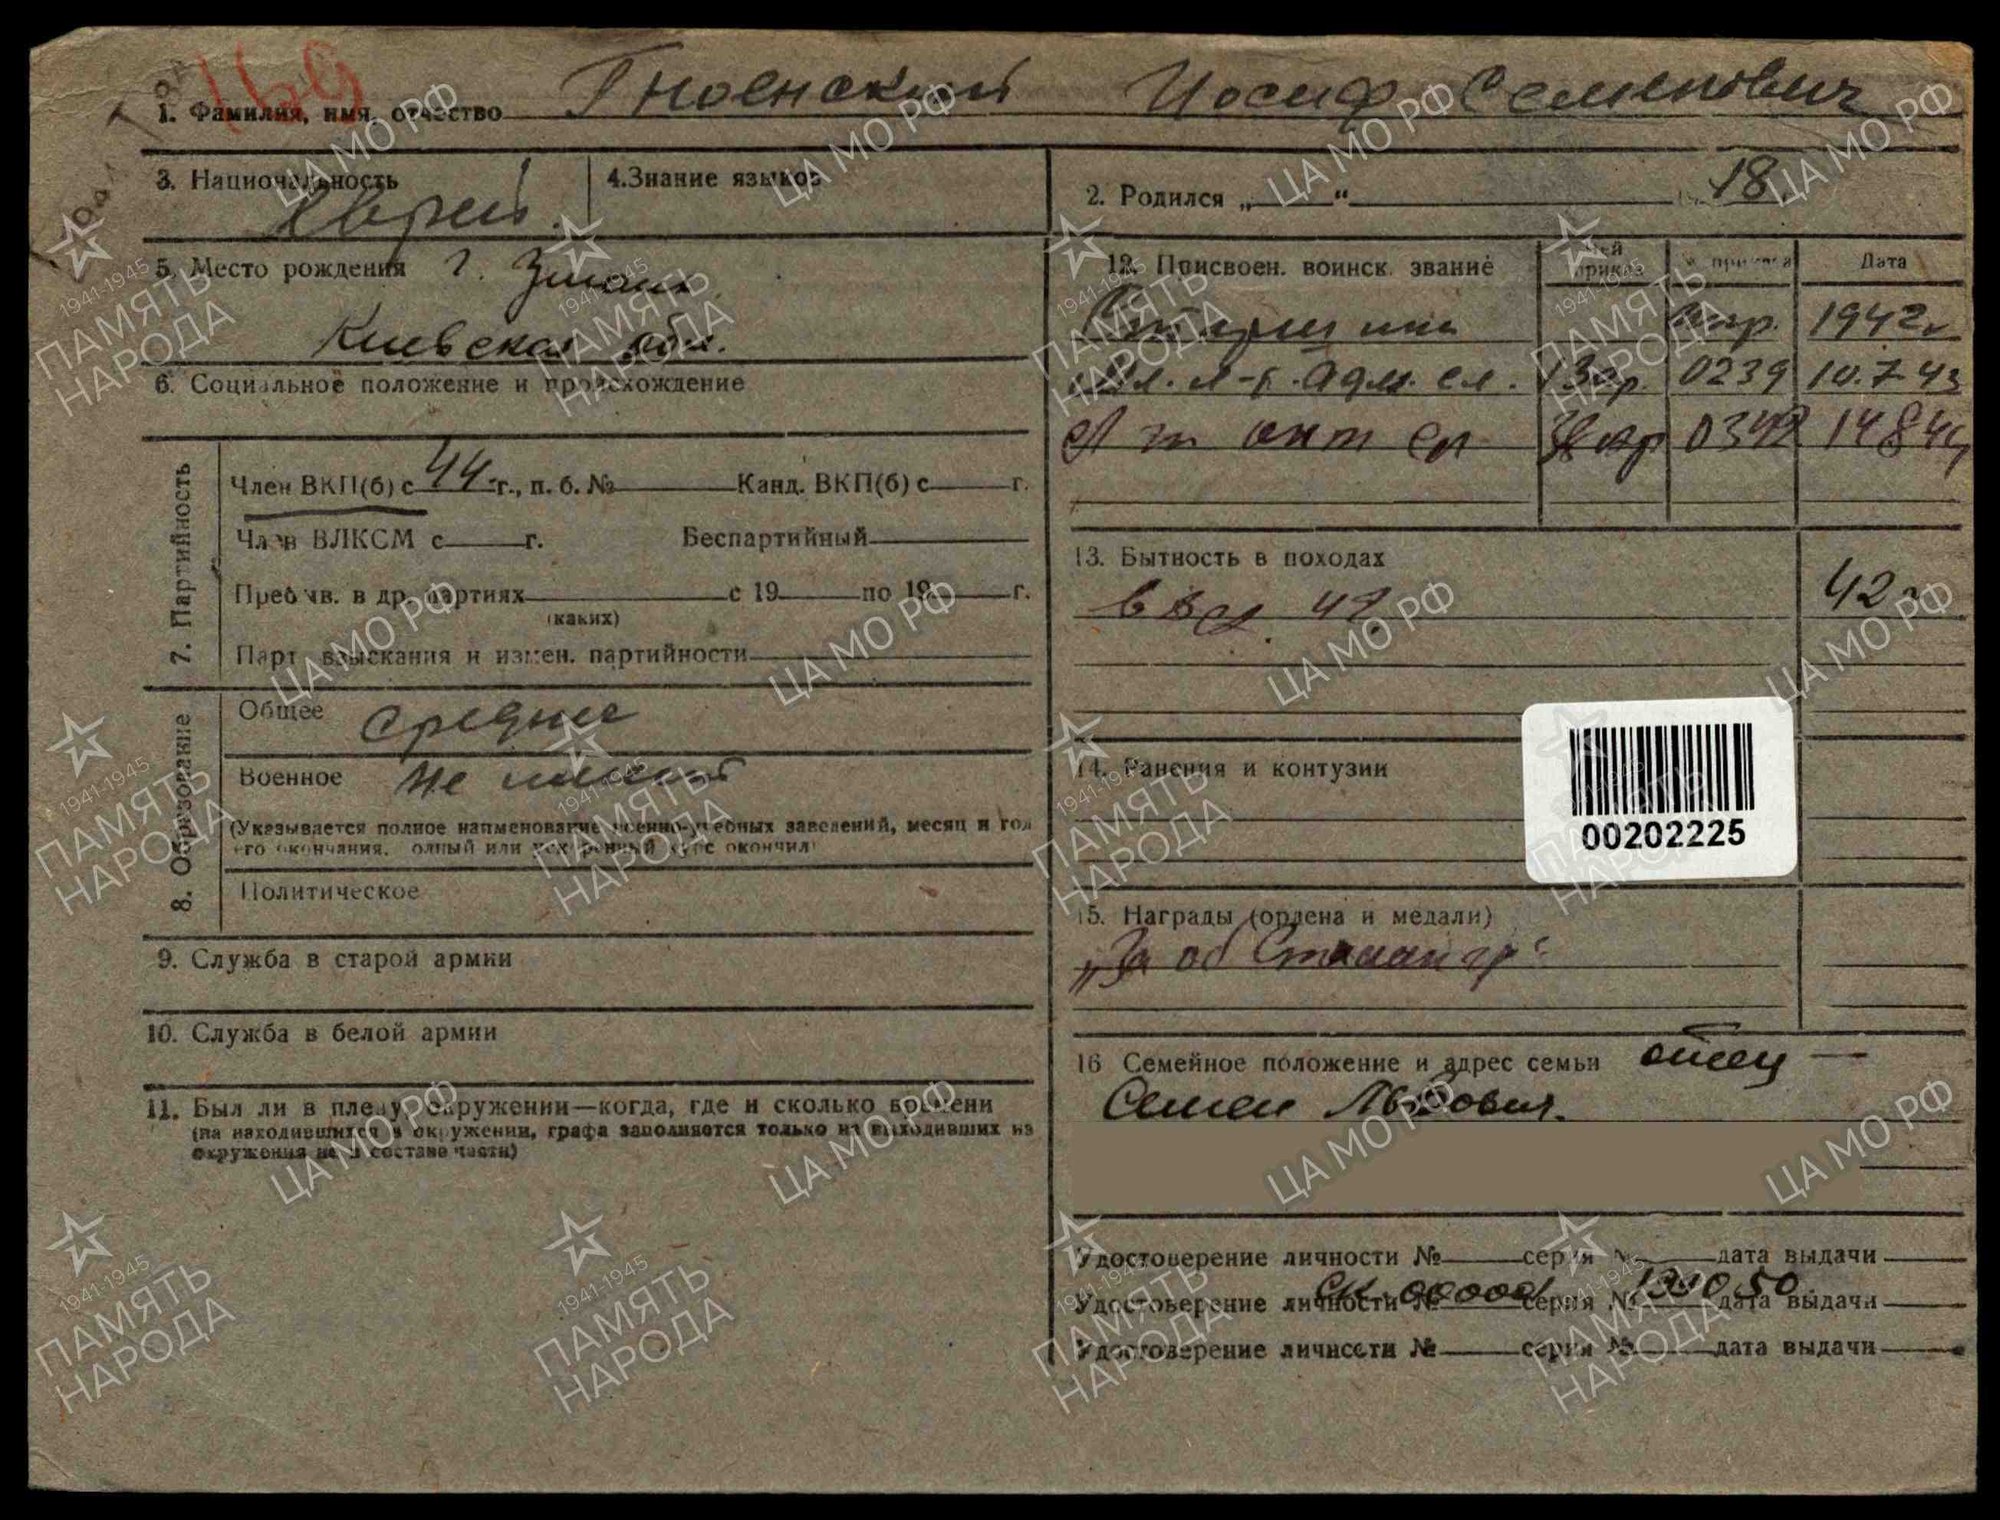 169
1. Фамилия, имя, отчество Гноенский Иосиф Семенович
3. Национальность еврей.
4. Знание языков
2. Родился „ “ 18
5. Место рождения г.
Киевская обл.
6. Социальное положение и происхождение
7. Партийность
Член ВКП(б) с 44 г., п. б. № Канд. ВКП(б) с г.
Член ВЛКСМ с г. Беспартийный
Пребыв. в др. партиях с 19 по 19 г.
(каких)
Парт. взыскания и измен. партийности
8. Образование
Общее среднее
Военное не имеет
(Указывается полное наименование военно-учебных заведений, месяц и год
его окончания, полный или ускоренный курс окончил)
Политическое
9. Служба в старой армии
10. Служба в белой армии
11. Был ли в плену, окружении—когда, где и сколько времени
(на находившихся в окружении, графа заполняется только на выходивших из
окружения не в составе части)
12. Присвоен. воинск. звание Чей приказ № приказа Дата
Старшина 1942г
Мл. л-т. адм. сл. 13 ар. 0239 10.7.43
Лт инт сл 0349 14 8 44
13. Бытность в походах
42г
14. Ранения и контузии
00202225
15. Награды (ордена и медали)
„За об Сталингр“
16 Семейное положение и адрес семьи отец —
Семен Львович.
Удостоверение личности № серия № дата выдачи
Удостоверение личности № серия № дата выдачи
Удостоверение личности № серия № дата выдачи
ЦА МО РФ
1941-1945
ПАМЯТЬ
НАРОДА